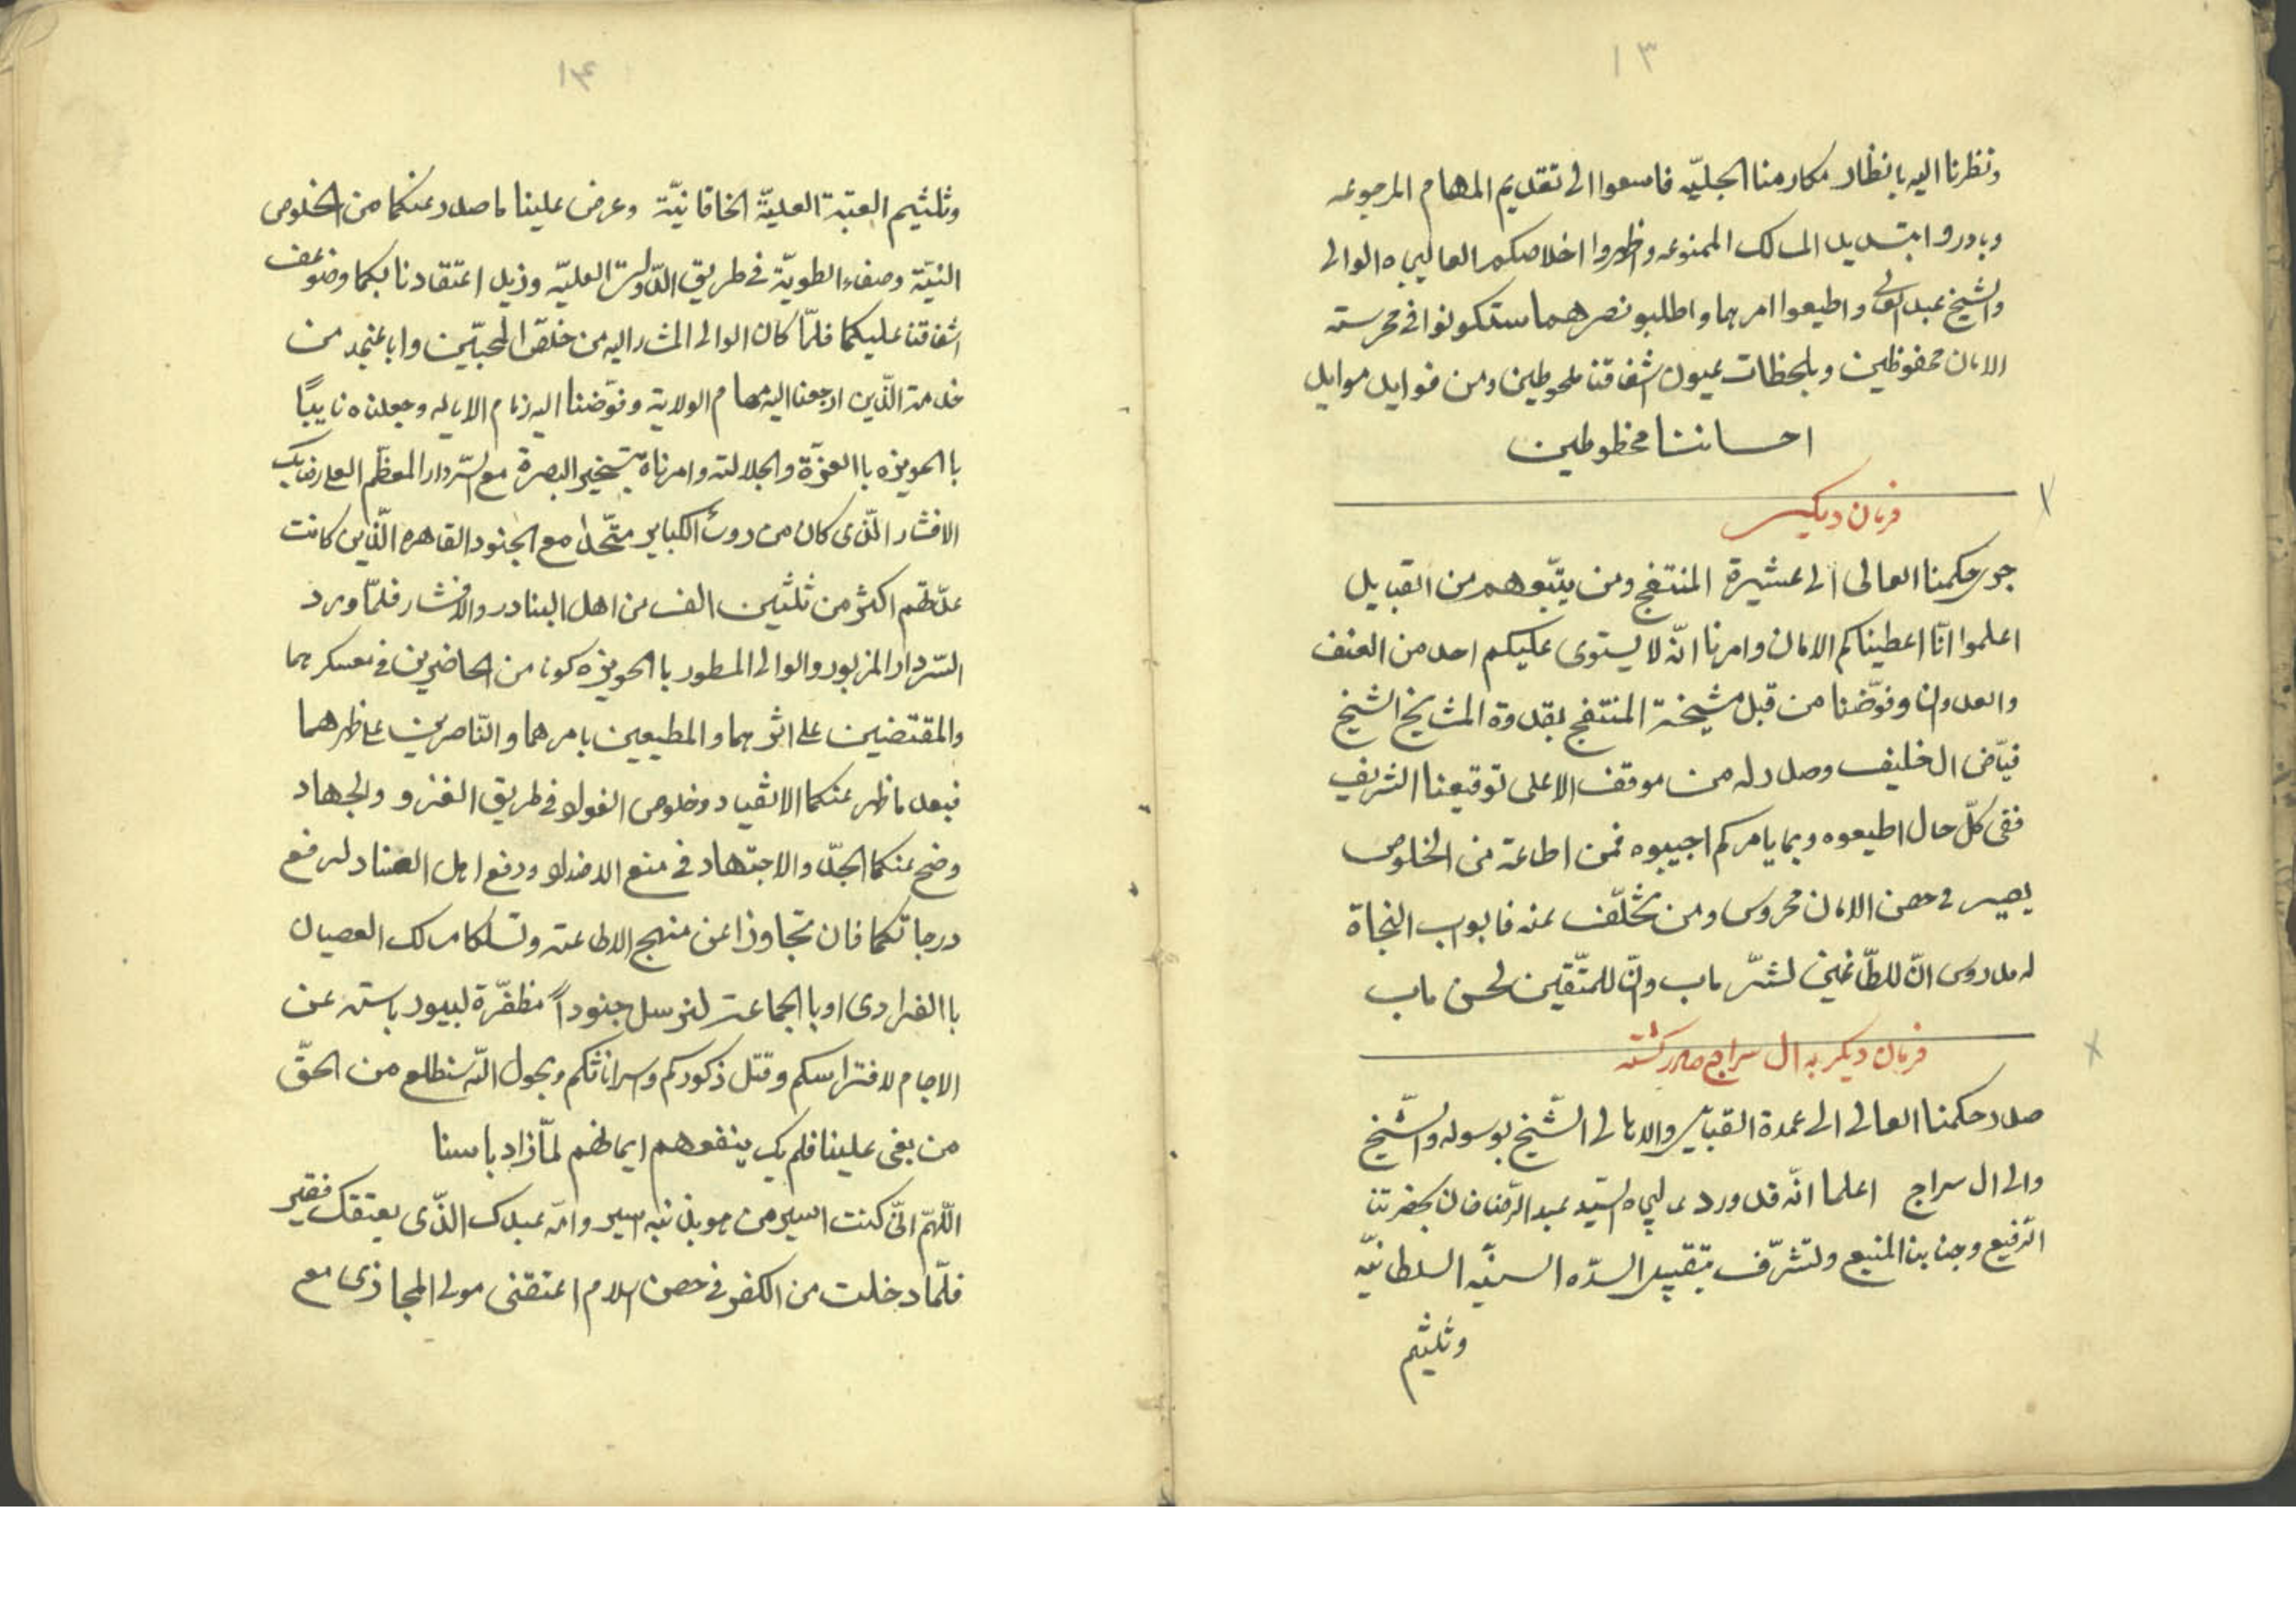 ١٣
ونظرنا اليه بانظار مكارمنا الجليّه فاسعوا الى تقديم المهام المرجوعه
وبادروا بتبديل المسالك الممنوعه واظهروا اخلاصكم العاليجاه الوالى
والشيخ عبدالعالى واطيعوا امرهما واطلبو نصرهما ستكونوا فى محرسته
الامان محفوظين وبلحظات عيون اشفاقنا ملحوظين ومن فوايل موايل
احساننا محظوظين
فرمان ديكر
جرى حكمنا العالى الى عشيرة المنتفج ومن يتبّعوهم من القبايل
اعلموا انّا اعطيناكم الامان وامرنا انّه لا يستوى عليكم احد من العنف
والعدوان وفوّضنا من قبل مشيخة المنتفج بقدوة المشايخ الشيخ
فيّاض الخليف وصدر له من موقف الاعلى توقيعنا الشريف
ففى كلّ حال اطيعوه وبما يامركم اجيبوه فمن اطاعة من الخلوص
يصير فى حصن الامان محروس ومن تخلّف عنه فابواب النجاة
له مدروس انّ للطّاغين لشرّ ماب وانّ للمتّقين لحسن ماب
فرمان ديكر به ال سراج صادر كشته
صدر حكمنا العالى الى عمدة القبايل والاهالى الشّيخ بوسوله والشّيخ
والى ال سراج اعلما انّه قد ورد عاليجاه السّيد عبدالرّضا خان بحضرتنا
الرّفيع وجنابنا المنيع ولتشرّف بتقبيل السدّه السنيّه السلطانيّه
وتلثيم
١٤
وتلثيم العتبة العليّة الخاقانيّة وعرض علينا ما صدر عنكما من الخلوص
النيّة وصفاء الطويّة فى طريق الدّولة العليّه وزيل اعتقادنا بكما وضوعف
اشفاقنا عليكما فلمّا كان الوالى المشاراليه من خلّص المحبّين وابا عنجد من
خدمة الّذين ارجعنا اليه مهام الولاية وفوّضنا اليه زمام الاياله وجعلناه نايبًا
با الحويزه با العزّة والجلالته وامرناه بتسخير البصرة مع السّردار المعظّم العلارضابيك
الافشار الّذى كان من روسٔ الكباير متّحدًا مع الجنود القاهره الّذين كانت
عدّتهم اكثر من ثلثين الف من اهل البنادر والافشار فلمّا ورد
السّردار المزبور والوالى المسطور با الحويزه كونا من الحاضرين فى معسكرهما
والمقتضين على اثرهما والمطيعين بامرهما والنّاصرين على ظهرهما
فبعد ما ظهر عنكما الانقياد وخلوص الفولو فى طريق الغزو والجهاد
وضح عنكما الجدّ والاجتهاد فى منع الاضداد ودفع اهل العناد لرفع
درجاتكما فان تجاوزا عن منهج الاطاعته وتسلكا مسالك العصيان
با الفرادى او با الجماعت لنرسل جنوداً مظفّرة لبيود باسته عن
الاجام لافتراسكم وقتل ذكوركم واسر اناثكم وبحول الله سنطلع من الحقّ
من بغى علينا فلم يك ينفعهم ايمانهم لمّا زاد باسنا
اللّهمّ انّى كنت اسير من هو بذنبه اسير وامّه عبدك الّذى يعتقك فقير
فلمّا دخلت من الكفر فى حصن اسلام اعتقنى مولى المجازى مع